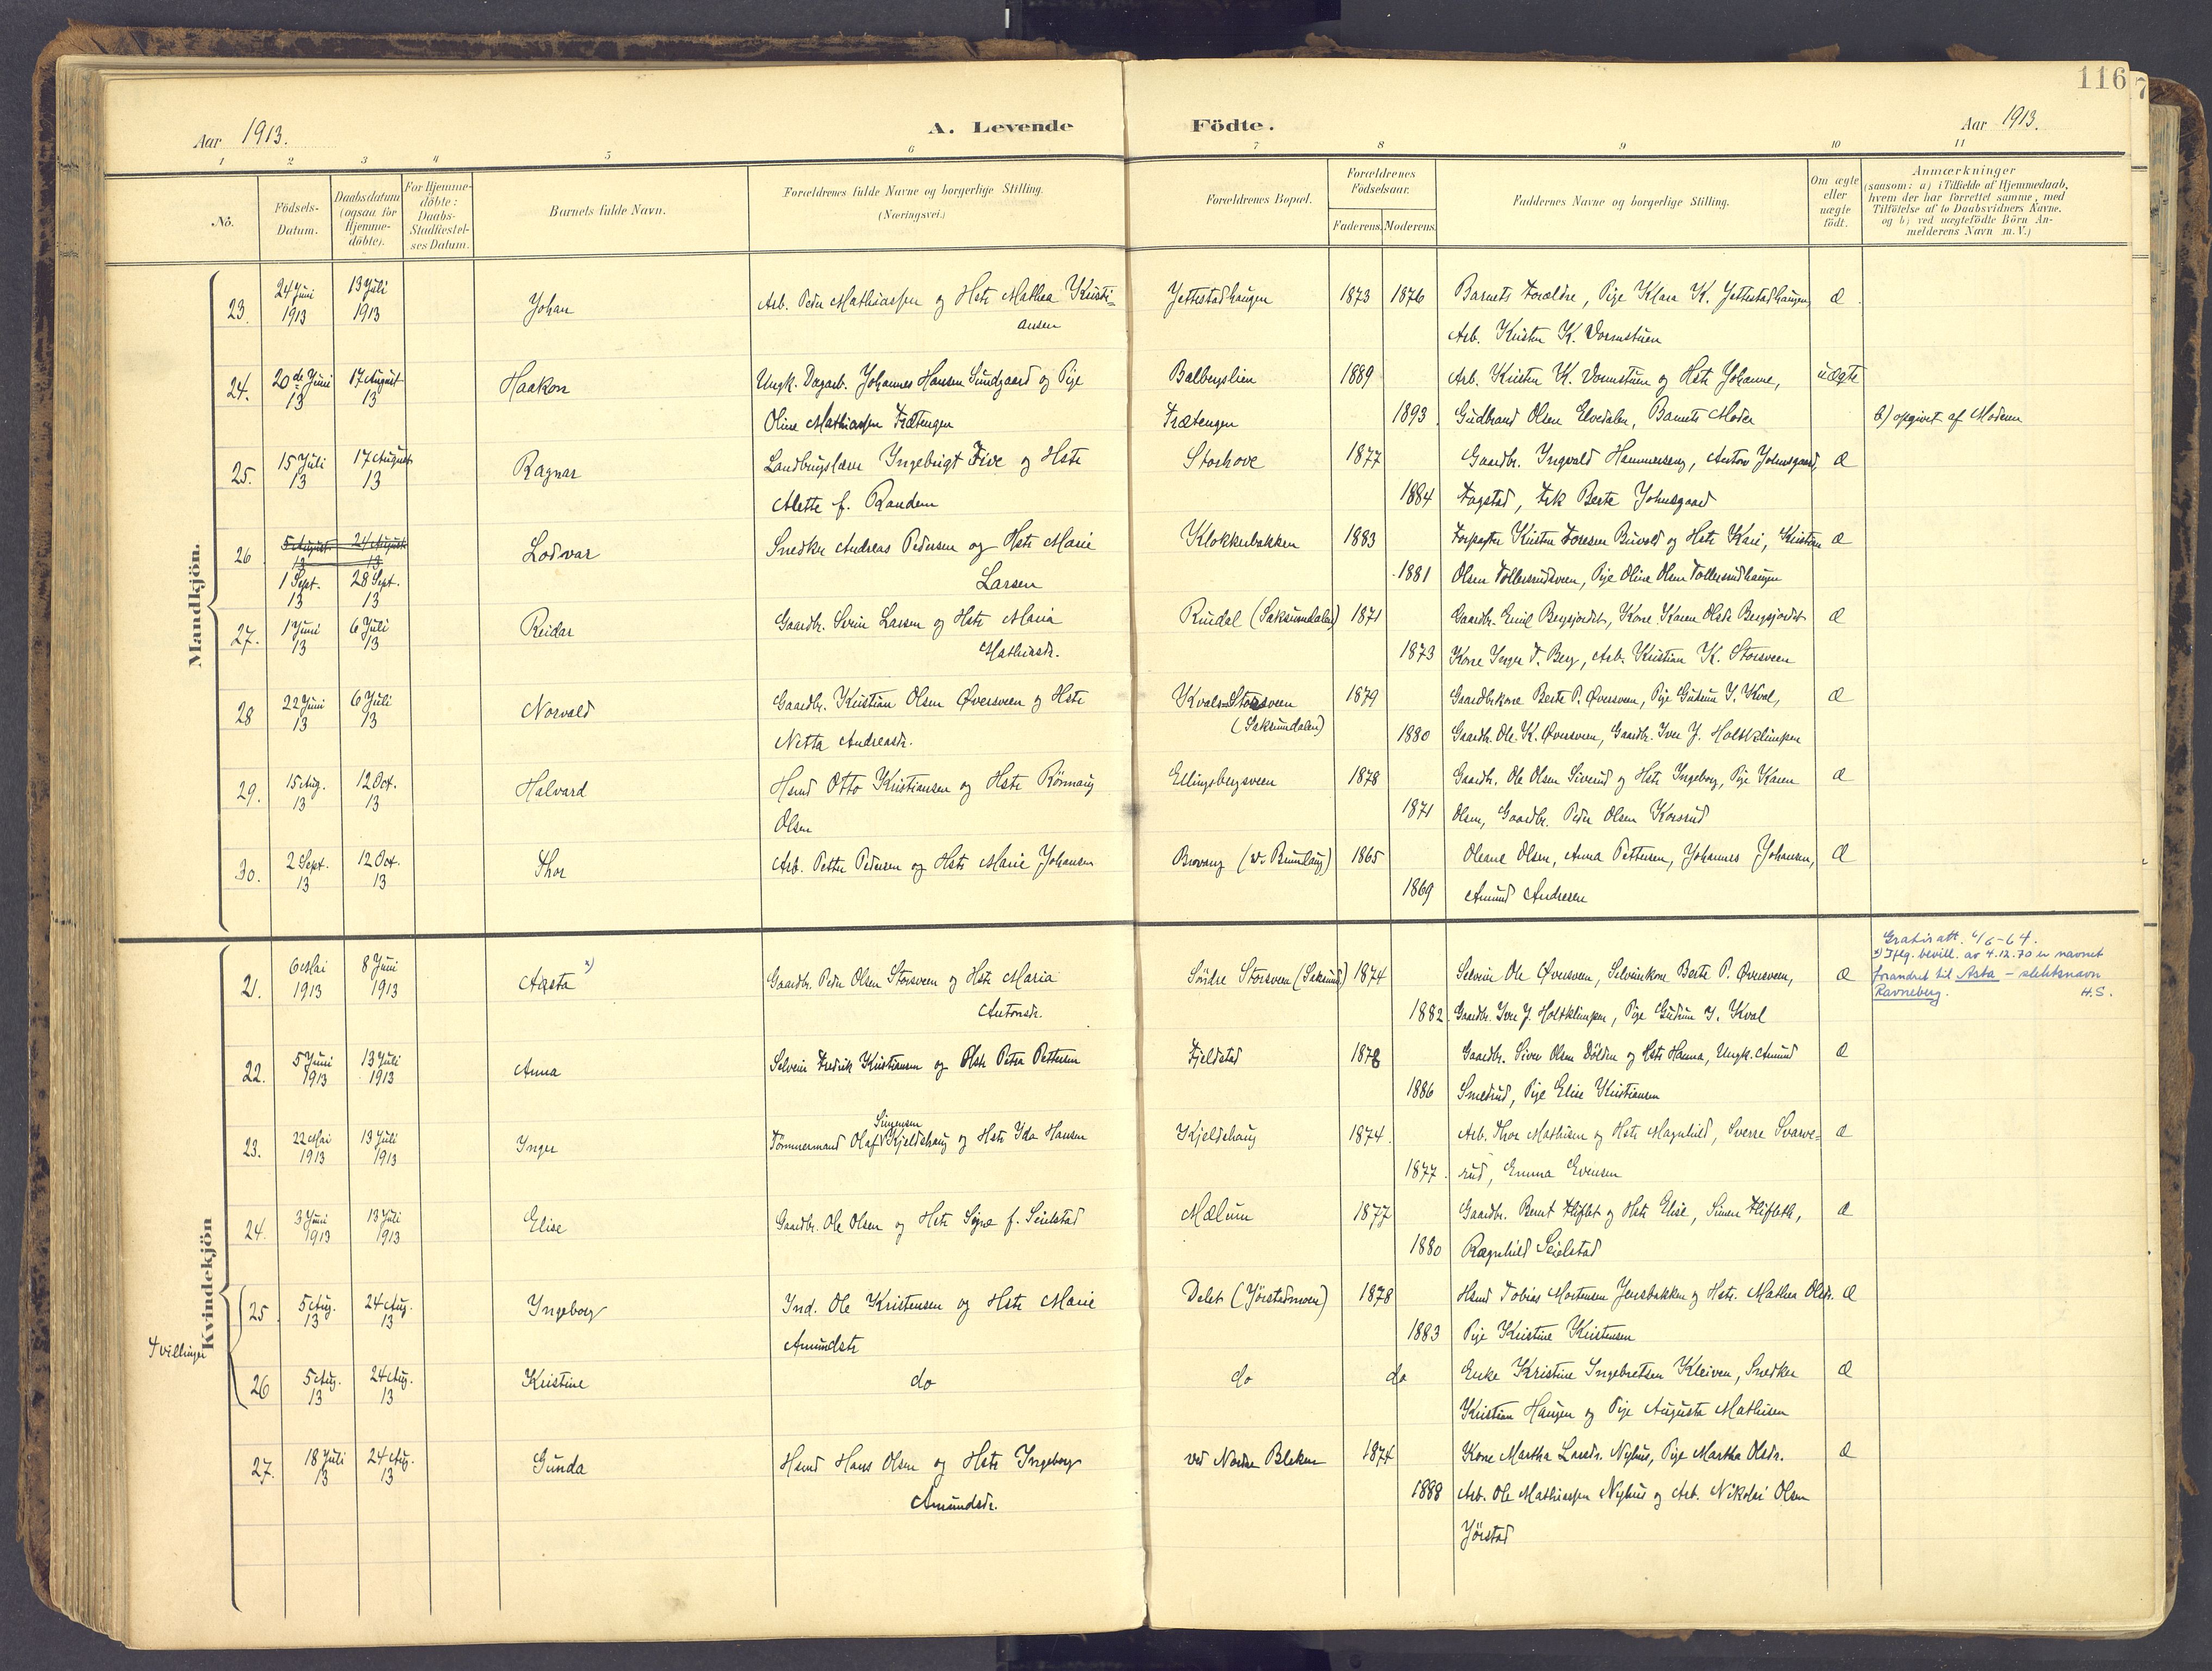 116
Aar 1913.
A. Levende
Födte.
Aar 1913.
1 2 3 4 5 6 7 8 9 10 11
No.
Födsels-Datum.
Daabsdatum (ogsaa for Hjemme-döbte).
For Hjemme-döbte: Daabs-Stadfæstel-ses Datum.
Barnets fulde Navn.
Forældrenes fulde Navne og borgerlige Stilling. (Næringsvei.)
Forældrenes Bopæl.
Forældrenes Födselsaar.
Faderens. Moderens.
Faddernes Navne og borgerlige Stilling.
Om ægte eller uægte födt.
Anmærkninger
(saasom: a) i Tilfælde af Hjemmedaab,
hvem der har forrettet samme, med
Tilföielse af to Daabsvidners Navne.
og b) ved uægtefödte Börn An-
melderens Navn m. V.)
Mandkjön.
23. 24 Juni 1913 13 Juli 1913 Johan Arb. Peder Mathiassen og Hstr Mathea Kristi= Jettestadhaugen 1873 1876 Barnets Forældre, Pige Klara K. Jettestadhaugen, Æ
ansen Arb. Kristen K. Dormstuen
24. 20de Juni 13 17 August 13 Haakon Ungk. Dagarb. Johannes Hansen Sundgaard og Pige Balberglien 1889 Arb. Kristen K. Dormstuen og Hstr Johanne, uægte
Oline Mathiassen Frætengen Frætengen 1893 Gudbrand Olsen Elvedalen, Barnets Moder b) opgivet af Moderen
25. 15 Juli 13 17 August 13 Ragnar Landbrugslærer Ingebrigt Five og Hstr Storhove 1877 Gaardbr. Ingvald Hammerseng, Anton Johnsgaard, Æ
Alette f. Randem 1884 Fagstad, Frk Berte Johnsgaard
26 5 August 13 24 August 13 Lodvar Snedker Andreas Pedersen og Hstr Marie Klokkerbakken 1883 Forpagter Kristen Foressen Buvold og Hstr Kari, Kristian Æ
1 Sept. 13 28 Sept. 13 Larsen 1881 Olsen Tollersrudsveen, Pige Oline Olsen Tollersrudhaugen
27. 1 Juni 13 6 Juli 13 Reidar Gaardbr. Svein Larsen og Hstr Maria Rindal (Saksumdalen) 1871 Gaardbr. Emil Bergsjordet, Kone Karen Olsdr Bergsjordet Æ
Mathiasdr. 1873 Kone Inger T. Berg, Arb. Kristian K. Storsveen
28 22 Juni 13 6 Juli 13 Norvald Gaardbr. Kristian Olsen Øversveen og Hstr Kvals-Storsveen 1879 Gaardbrkone Berte P. Øversveen, Pige Gudrun I. Kval, Æ
Netta Andreasdr. (Saksumdalen) 1880 Gaardbr. Ole K. Øversveen, Gaardbr. Iver J. Holtklimpen
29. 15 Aug. 13 12 Oct. 13 Halvard Hsmd Otto Kristiansen og Hstr Rønnaug Ellingsbergsveen 1878 Gaardbr. Ole Olsen Siverud og Hstr Ingeborg, Pige Karen Æ
Olsen 1871 Olsen, Gaardbr. Peder Olsen Korsrud
30. 2 Sept. 13 12 Oct. 13 Thor Arb. Petter Pedersen og Hstr Marie Johansen Brovang (v. Brunlaug) 1865 Oleane Olsen, Anna Pettersen, Johannes Johansen, Æ
1869 Amund Andresen
Kvindekjön
21. 6 Mai 1913 8 Juni 1913 Aasta x) Gaardbr. Peder Olsen Storsveen og Hstr Maria Søndre Storsveen (Saksumd.) 1874 Selveier Ole Øversveen, Selveierkone Berte P. Øversveen, Æ
Antonsdr. 1882 Gaardbr. Iver J. Holtklimpen, Pige Gudrun I. Kval
Gratis att. 4/6-64.
x) Iflg. bevill. av 4.12.70 er navnet
forandret til Asta – slektsnavn
Ravneberg. H.S.
22. 5 Juni 1913 13 Juli 1913 Anna Selveier Fredrik Kristiansen og Hstr Petra Pettersen Fjeldstad 1878 Gaardbr. Siver Olsen Dölden og Hstr Hanna, Ungk. Amund Æ
1886 Smedrud, Pige Elise Kristiansen
23. 22 Mai 1913 13 Juli 1913 Inger Tömmermand Olaf Simensen Kjeldshaug og Hstr Ida Hansen Kjeldshaug 1874. Arb. Thor Mathisen og Hstr Magnhild, Sverre Svarve= Æ
1877. rud, Emma Evensen
24. 3 Juni 1913 13 Juli 1913 Elise Gaardbr. Ole Olsen og Hstr Signe f. Seielstad Mælum 1877 Gaardbr. Bernt Fliflet og Hstr Elise, Simen Flifleth, Æ
1880 Ragnhild Seielstad
Tvillinger
25 5 Aug. 13 24 Aug. 13 Ingeborg Ind. Ole Kristensen og Hstr Marie Delet (Jörstadmoen) 1878 Hsmd Tobias Mortensen Jensbakken og Hstr. Mathea Olsdr. Æ
Amundsdr 1883 Pige Kristine Kristensen
26 5 Aug. 13 24 Aug. 13 Kristine do do do Enke Kristine Ingebretsen Kleiven, Snedker Æ
Kristian Haugen og Pige Augusta Mathisen
27. 18 Juli 13 24 Aug. 13 Gunda Hsmd Hans Olsen og Hstr Ingeborg ved Nordre Bleken 1874 Kone Martha Larsdr. Nyhus, Pige Martha Olsdr. Æ
Amundsdr. 1888 Arb. Ole Mathiassen Nyhus og Arb. Nikolai Olsen
Jörstad